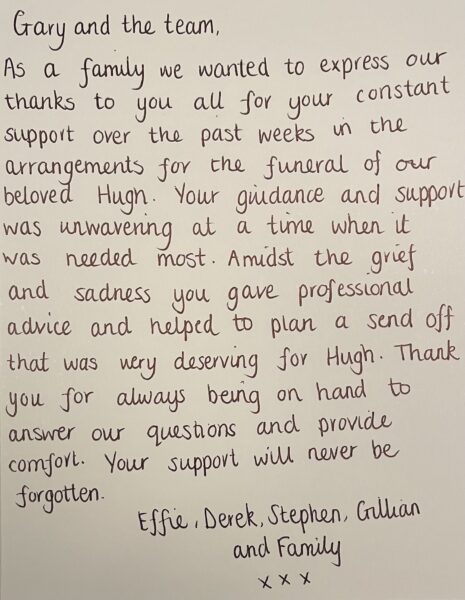 Gary and the team,
As a family we wanted to express our
thanks to you all for your constant
support over the past weeks in the
arrangements for the funeral of our
beloved Hugh. Your guidance and support
was unwavering at a time when it
was needed most. Amidst the grief
and sadness you gave professional
advice and helped to plan a send off
that was very deserving for Hugh. Thank
you for always being on hand to
answer our questions and provide
comfort. Your support will never be
forgotten.
Effie, Derek, Stephen, Gillian
and Family
x x x